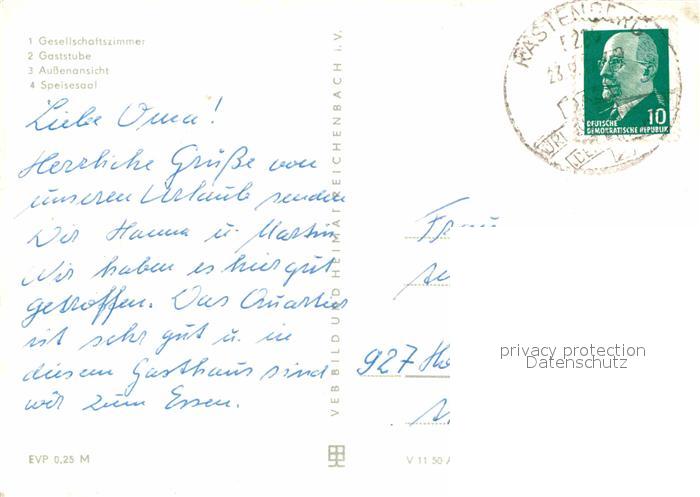 1 Gesellschaftszimmer
2 Gaststube
3 Außenansicht
4 Speisesaal
Liebe Oma!
Herzliche Grüße von
unserem Urlaub senden
Dir Hanna u. Martin
Wir haben es hier gut
getroffen. Das Quartier
ist sehr gut u. in
diesem Gasthaus sind
wir zum Essen.
EVP 0,25 M
VEB BILD UND HEIMAT REICHENBACH i.V.
RASTENBERG
10
DEUTSCHE
DEMOKRATISCHE REPUBLIK
Frau
927
privacy protection
Datenschutz
V 11 50